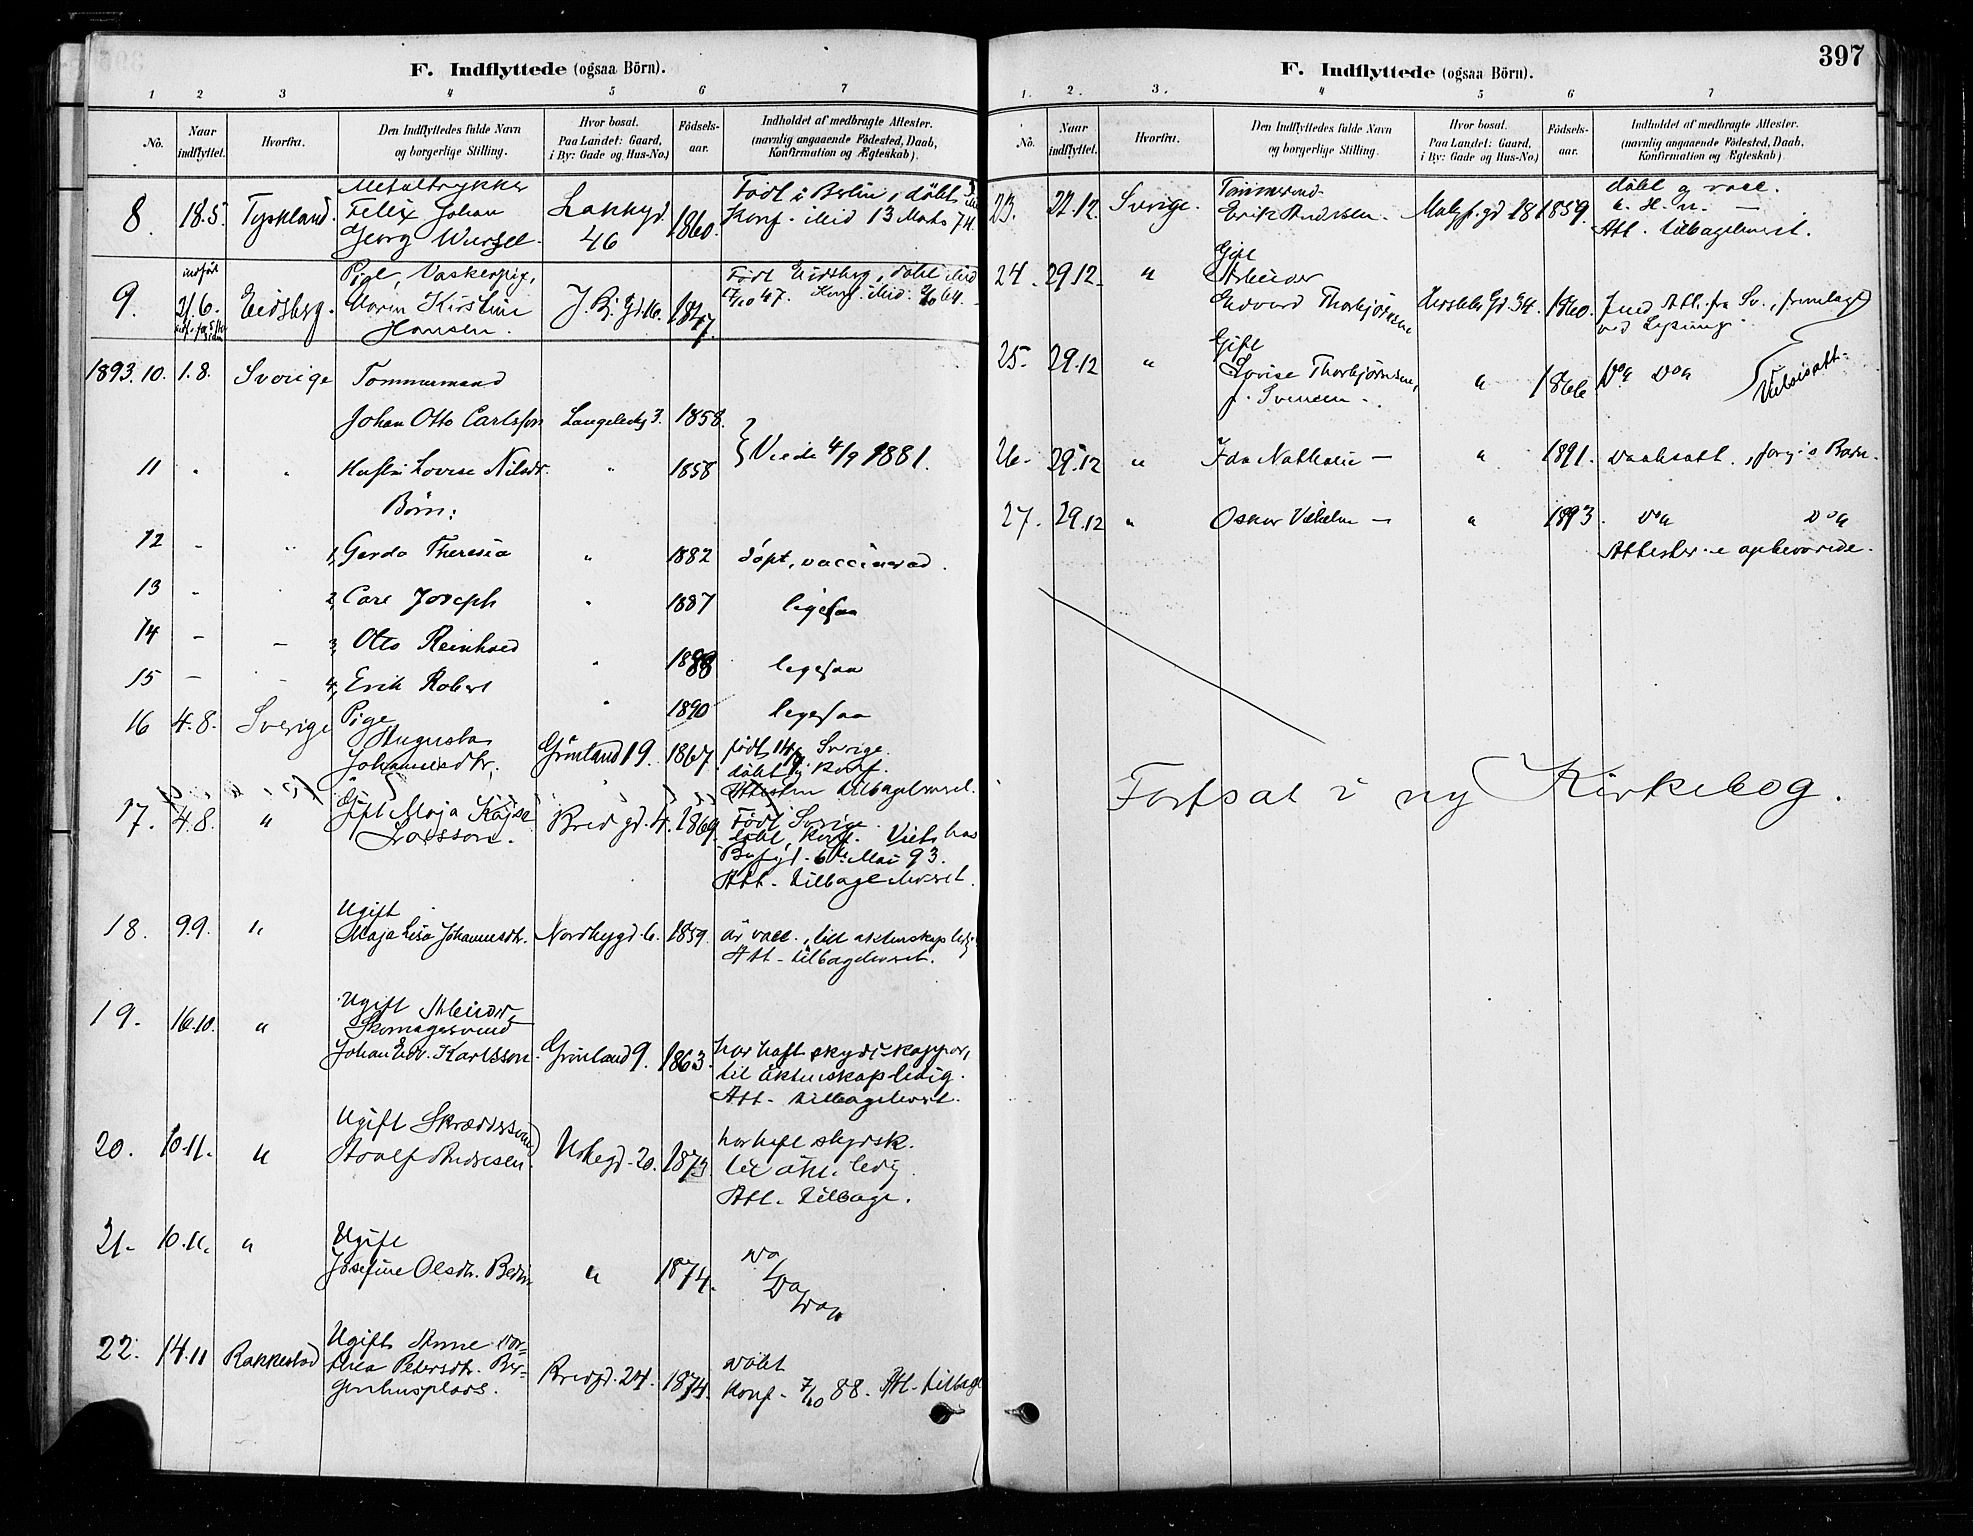 F. Indflyttede (ogsaa Börn).
1 2 3 4 5 6 7
No. Naar indflyttet. Hvorfra. Den Indflyttedes fulde Navn og borgerlige Stilling. Hvor bosat. Paa Landet: Gaard, i By: Gade og Hus-No.) Födsels-aar. Indholdet af medbragte Attester. (navnlig angaaende Födested, Daab, Konfirmation og Ægteskab).
Metaltrykker
8. 18.5. Tyskland. Felix Johan 1860. Født i Berlin, døbt,
Georg Wursel. 46 Konf. 13 Marts 74.
9. 21.6. Eidsberg. Pige, Vaskerpige,
Maren Kirstine 1847. Født Eidsberg, døbt
Hansen. Konf.
1893. 10. 1.8. Sverige Tømmermand
Johan Otto Carlsson 3. 1858.
} Viede 4/9 1881.
11 " " Lovise Nilsdr. " 1858
Børn:
12 - " 1, Gerda Theresia " 1882 döpt, vaccinerad.
13 2, Carl Joseph " 1887 ligesaa
14 - - 3, Otto Reinhold " 1888 ligesaa
15 - - 4, Erik Robert " 1890 ligesaa
16 4.8. Sverige Pige
Augusta
Johannesdtr. Grønland 19. 1867. født Sverige.
døbt, konf.
Attesten tilbageleveret.
17. 4.8. " Gift Maja Kajsa
Larsson. Bredgd. 4. 1869. Født Sverige
døbt, konf. Viet hos
6te Mai 93.
Att. tilbageleveret.
18. 9.9. " Ugift
Maja Lisa Johannesdtr. Nordbygd. 6. 1859. är vacc., till äktenskap ledig
Att. tilbageleveret.
19. 16.10. " Ugift Arbeider,
Skomagersvend
Johan Edv. Karlsson. Grønland 9. 1863. har haft skyddskoppor,
til äktenskap ledig.
Att. tilbageleveret.
20. 10.11. " Ugift Skræddersvend
Adolf Andresen. 20. 1873. har haft skydsk.
til äkt. ledig.
Att. tilbage.
21. 10.11. " Ugift
Josefine Olsdtr. " 1874.
22. 14.11 Rakkestad Ugift Anne Dor-
thea Petersdtr. Ber-
genhusplads. Bredgd. 24. 1874. døbt
konf. 7/10 88. Att. tilbage
397
F. Indflyttede (ogsaa Börn).
1. 2. 3. 4 5 6 7
No. Naar indflyttet. Hvorfra. Den Indflyttedes fulde Navn og borgerlige Stilling. Hvor bosat. Paa Landet: Gaard, i By: Gade og Hus-No.) Födsels-aar. Indholdet af medbragte Attester. (navnlig angaaende Födested, Daab, Konfirmation og Ægteskab).
23. 22.12. Sverige. Tømmermd.
Erik Andersen. 18 1859. døbt og vacc.
Att. tilbageleveret.
24. 29.12. " Gift
Arbeider
Edvard Thorbjørnsen Herslebs Gd. 34. 1860. Att. fra Sv., fremlagt
ved Lysning.
25. 29.12 " Gift
Lovise Thorbjørnsen,
f. Svensen. " 1866 Do Do Vielsesatt.
26. 29.12 " Ida Nathalie - " 1891. Daabsatt., forr.'s Barn.
27. 29.12 " Oskar Vilhelm - " 1893. Do Do
Attester e opbevarede.
Fortsat i ny Kirkebog.